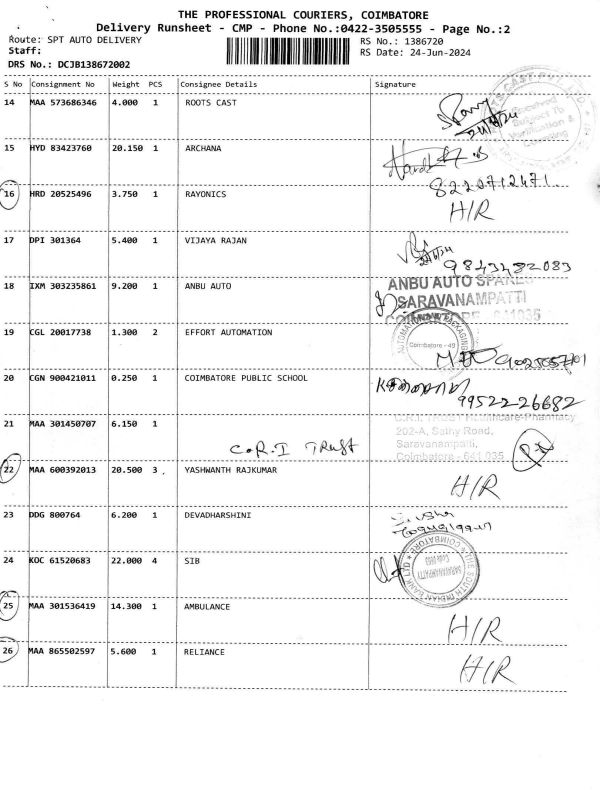 THE PROFESSIONAL COURIERS, COIMBATORE
Delivery Runsheet - CMP - Phone No.:0422-3505555 - Page No.:2
Route: SPT AUTO DELIVERY
RS No.: 1386720
Staff:
RS Date: 24-Jun-2024
DRS No.: DCJB138672002
S No Consignment No Weight PCS Consignee Details Signature
14 MAA 573686346 4.000 1 ROOTS CAST
Received
Subject To
Verification &
15 HYD 83423760 20.150 1 ARCHANA
8220712471
16 HRD 20525496 3.750 1 RAYONICS H/R
17 DPI 301364 5.400 1 VIJAYA RAJAN
9843482083
18 IXM 303235861 9.200 1 ANBU AUTO
ANBU AUTO SPARES
SARAVANAMPATTI
19 CGL 20017738 1.300 2 EFFORT AUTOMATION
Coimbatore - 49
20 CGN 900421011 0.250 1 COIMBATORE PUBLIC SCHOOL
9952226682
21 MAA 301450707 6.150 1
C.R.I TRUST
202-A, Sathy Road,
Saravanampatti,
Coimbatore - 641 035
22 MAA 600392013 20.500 3 YASHWANTH RAJKUMAR H/R
23 DDG 800764 6.200 1 DEVADHARSHINI
24 KOC 61520683 22.000 4 SIB
THE SOUTH INDIAN BANK LTD
COIMBATORE
SARAVANAMPATTI
25 MAA 301536419 14.300 1 AMBULANCE H/R
26 MAA 865502597 5.600 1 RELIANCE H/R